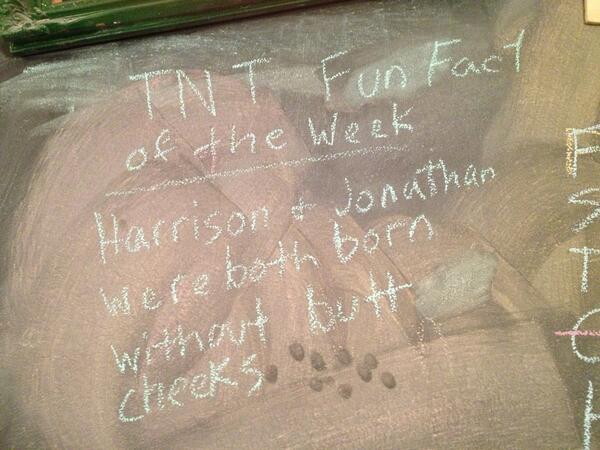 TNT Fun Fact
of the Week
Harrison + Jonathan
were both born
without butt
cheeks